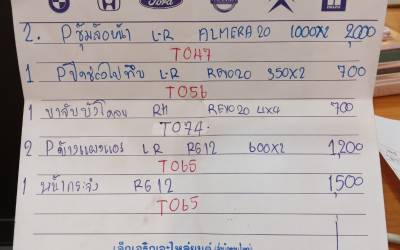 Ford
2. Pซุ้มล้อหน้า L-R ALMERA 20 1000x2 2,000
TO47
1 Pปิดช่องไฟทึบ L-R REVO20 350x2 700
TO56
1 ขาจับบังโคลน RH REVO20 4x4 700
TO74.
2 Pข้างแผงแอร์ LR RG12 600x2 1,200
TO65
1 หน้ากระจัง RG12 1,500
TO65